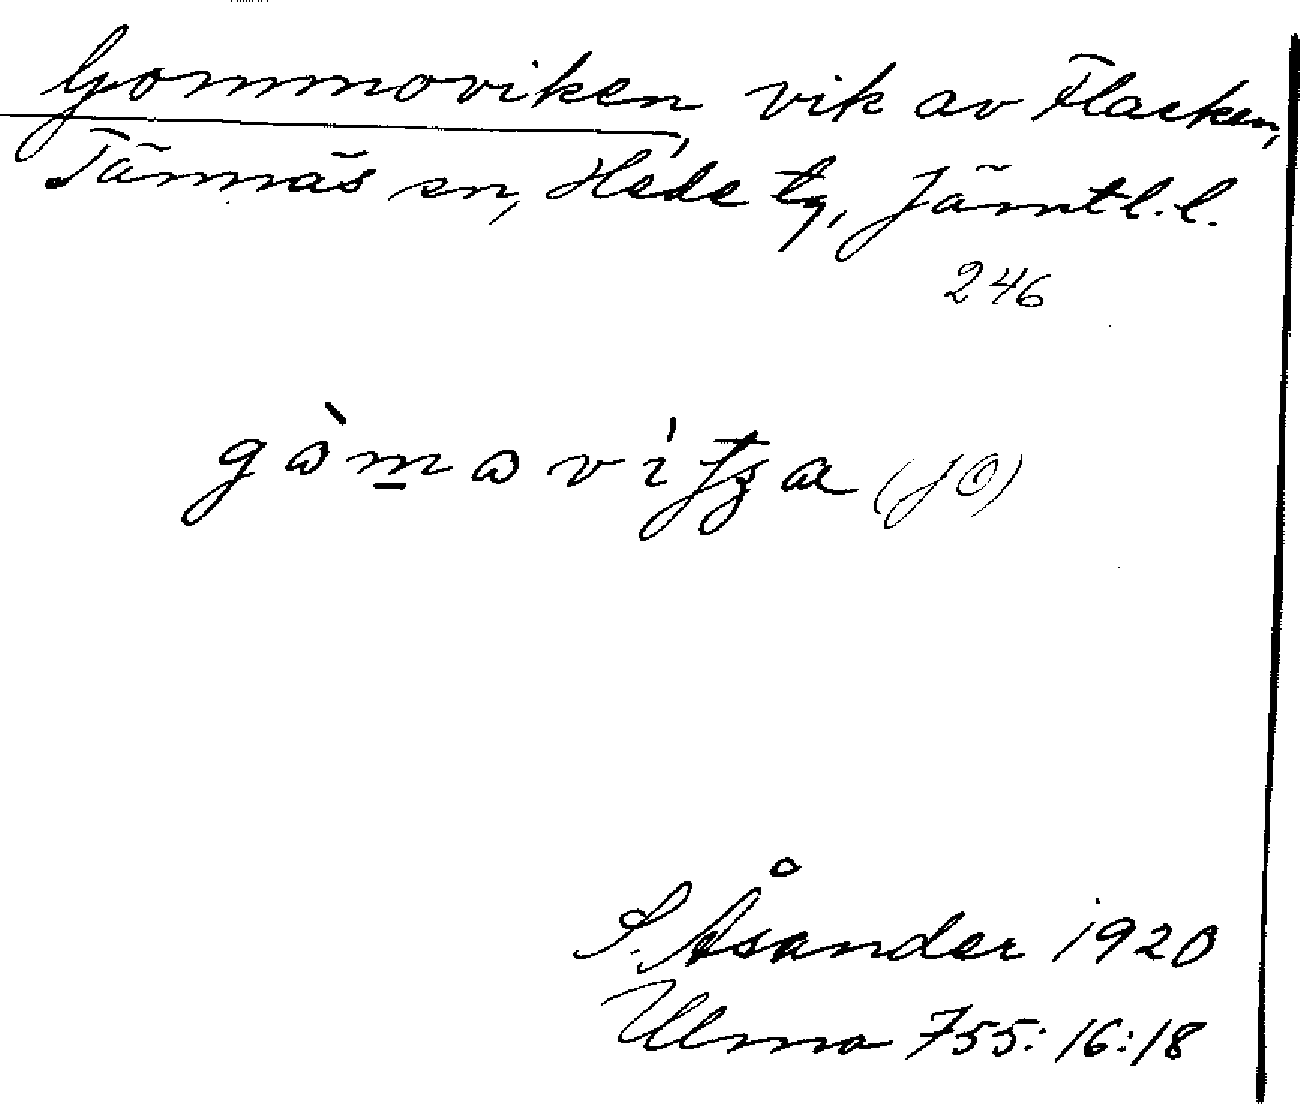 Gommoviken, vik av Flacken,
Tännäs sn, Hede tg, Jämtl. l.
246
(JÖ)
S. Åsander 1920
Ulma 755:16:18